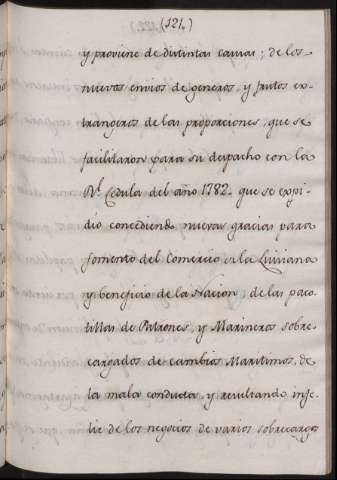 (121.)
y proviene de distintas causas; de los
nuevos envios de generos, y frutos ex-
trangeros de las proporciones, que se
facilitaron para su despacho con la
Rl. Cedula del año 1782. que se expi-
dio concediendo nuevas gracias para
fomento del Comercio de la Luisiana
y beneficio de la Nacion, de las paco-
tillas de Patrones, y Marineros sobre-
cargados de cambios Maritimos, de
la mala conducta, y resultando infe-
liz de los negocios de varios sobrecargos